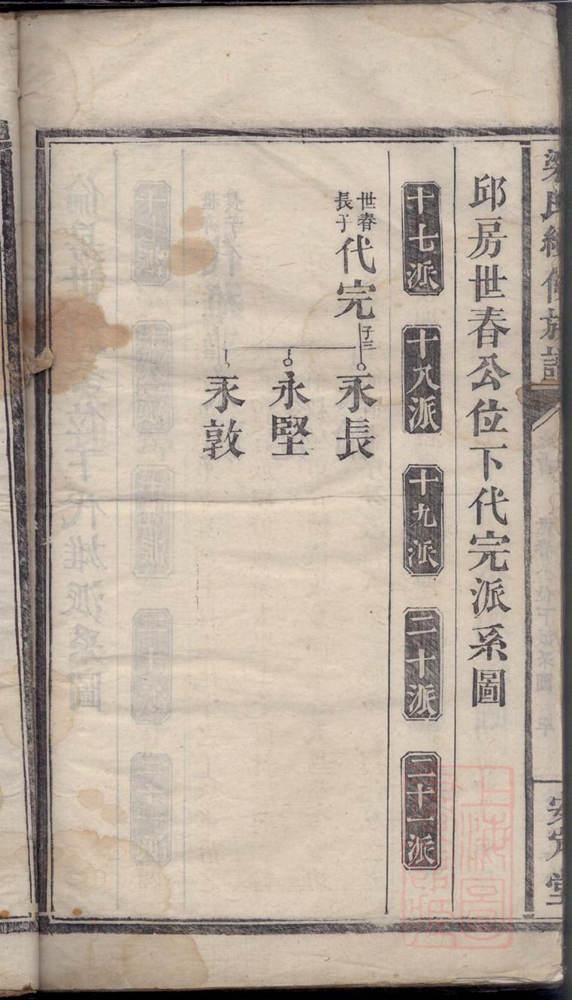 梁氏經修族譜
安定堂
邱房世春公位下代完派系圖
十七派 十八派 十九派 二十派 二十一派
世春長子 代完 子三
永長
永堅
永敦